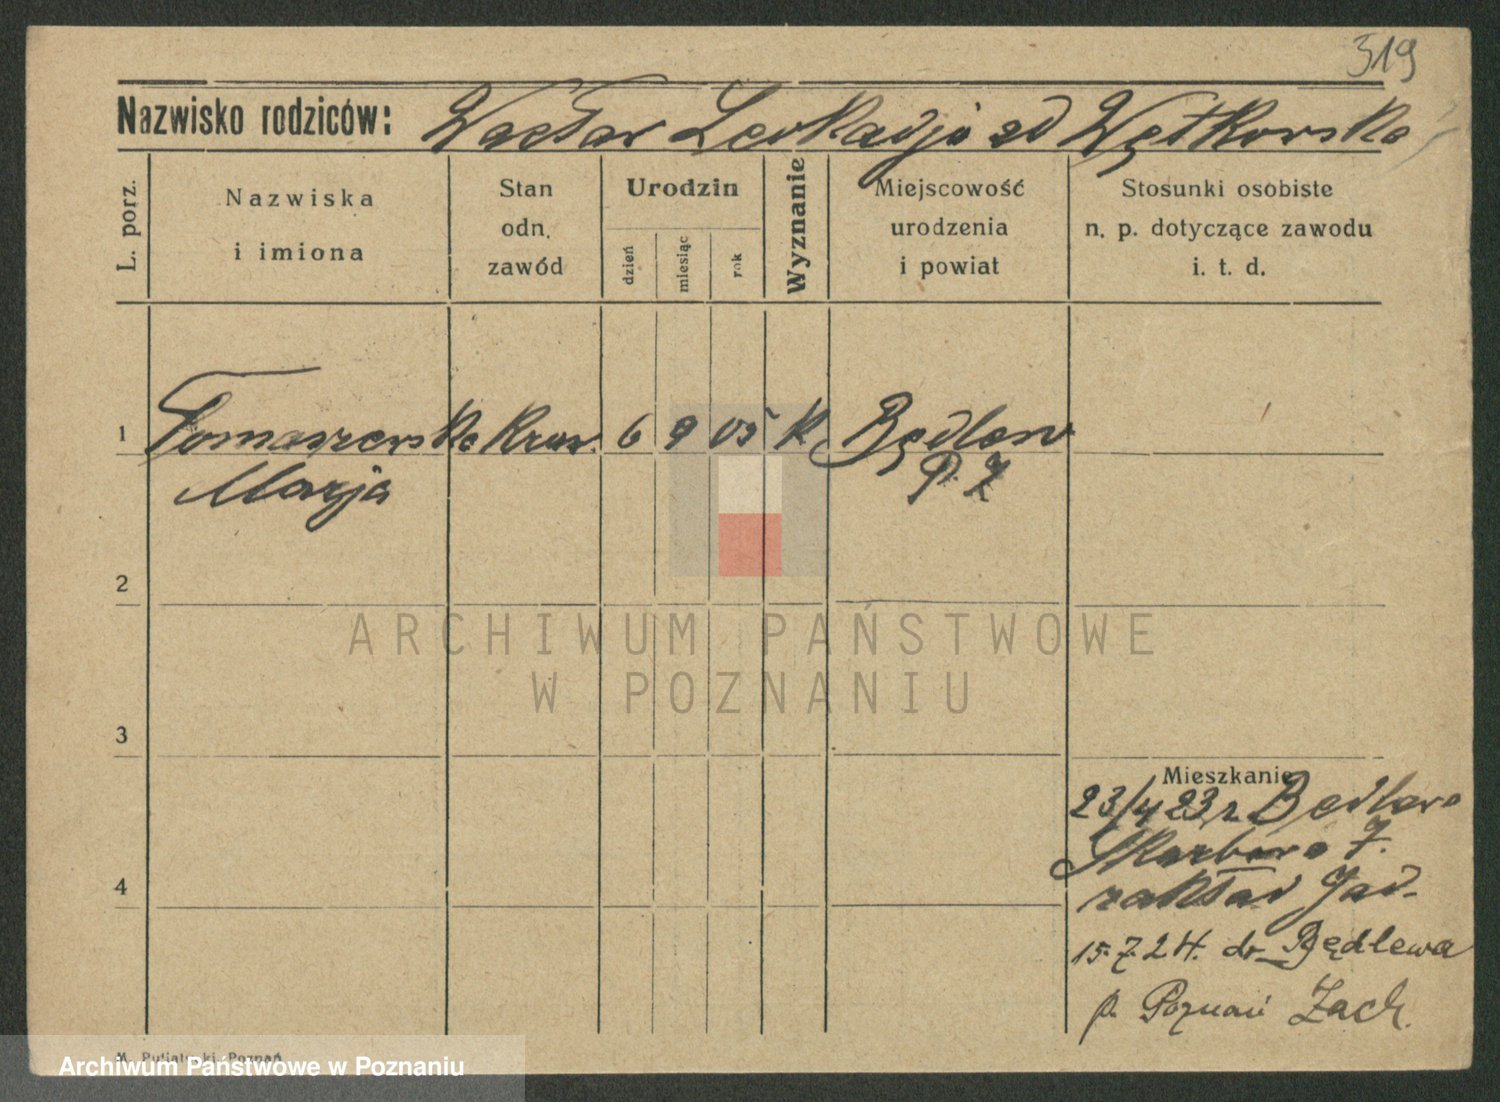 319
Nazwisko rodziców: Wacław Leokadja zd Wętkowska
L. porz.
Nazwiska
i imiona
Stan
odn.
zawód
Urodzin
dzień
miesiąc
rok
Wyznanie
Miejscowość
urodzenia
i powiat
Stosunki osobiste
n. p. dotyczące zawodu
i. t. d.
1 Tomaszewska kraw. 6 9 05 k Będlew
Marja P. Z
2
ARCHIWUM PAŃSTWOWE
W POZNANIU
3
Mieszkanie
23/4 23 r Będlewo
Skarbowa 7.
4
zakład Jad.
15.7.24. do Będlewa
p. Poznań Zach.
M. Putiatycki, Poznań
Archiwum Państwowe w Poznaniu